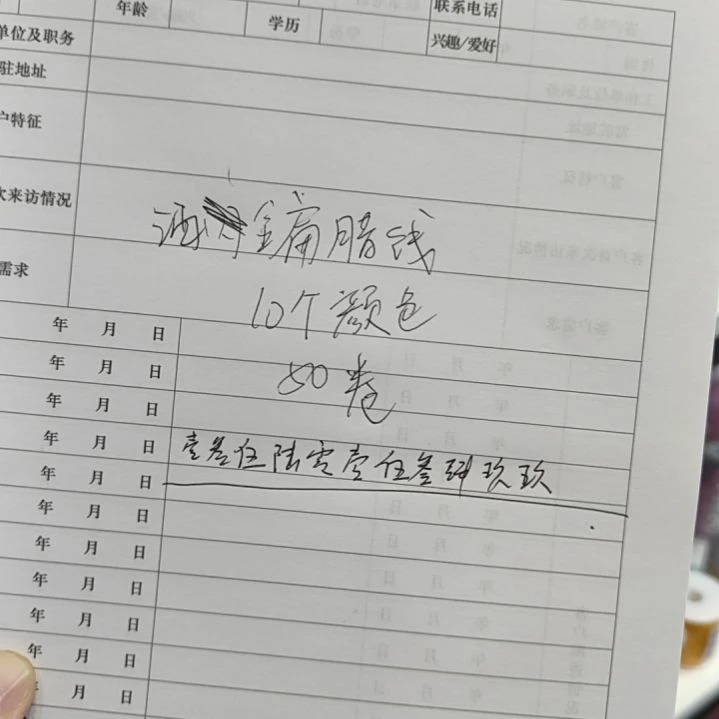 年龄 学历 联系电话
单位及职务 兴趣/爱好
驻地址
户特征
次来访情况
金扁腊线
需求
10个颜色
年 月 日
50卷
年 月 日
年 月 日
年 月 日 壹叁伍陆零壹伍叁肆玖玖
年 月 日
年 月 日
年 月 日
年 月 日
年 月 日
年 月 日
年 月 日